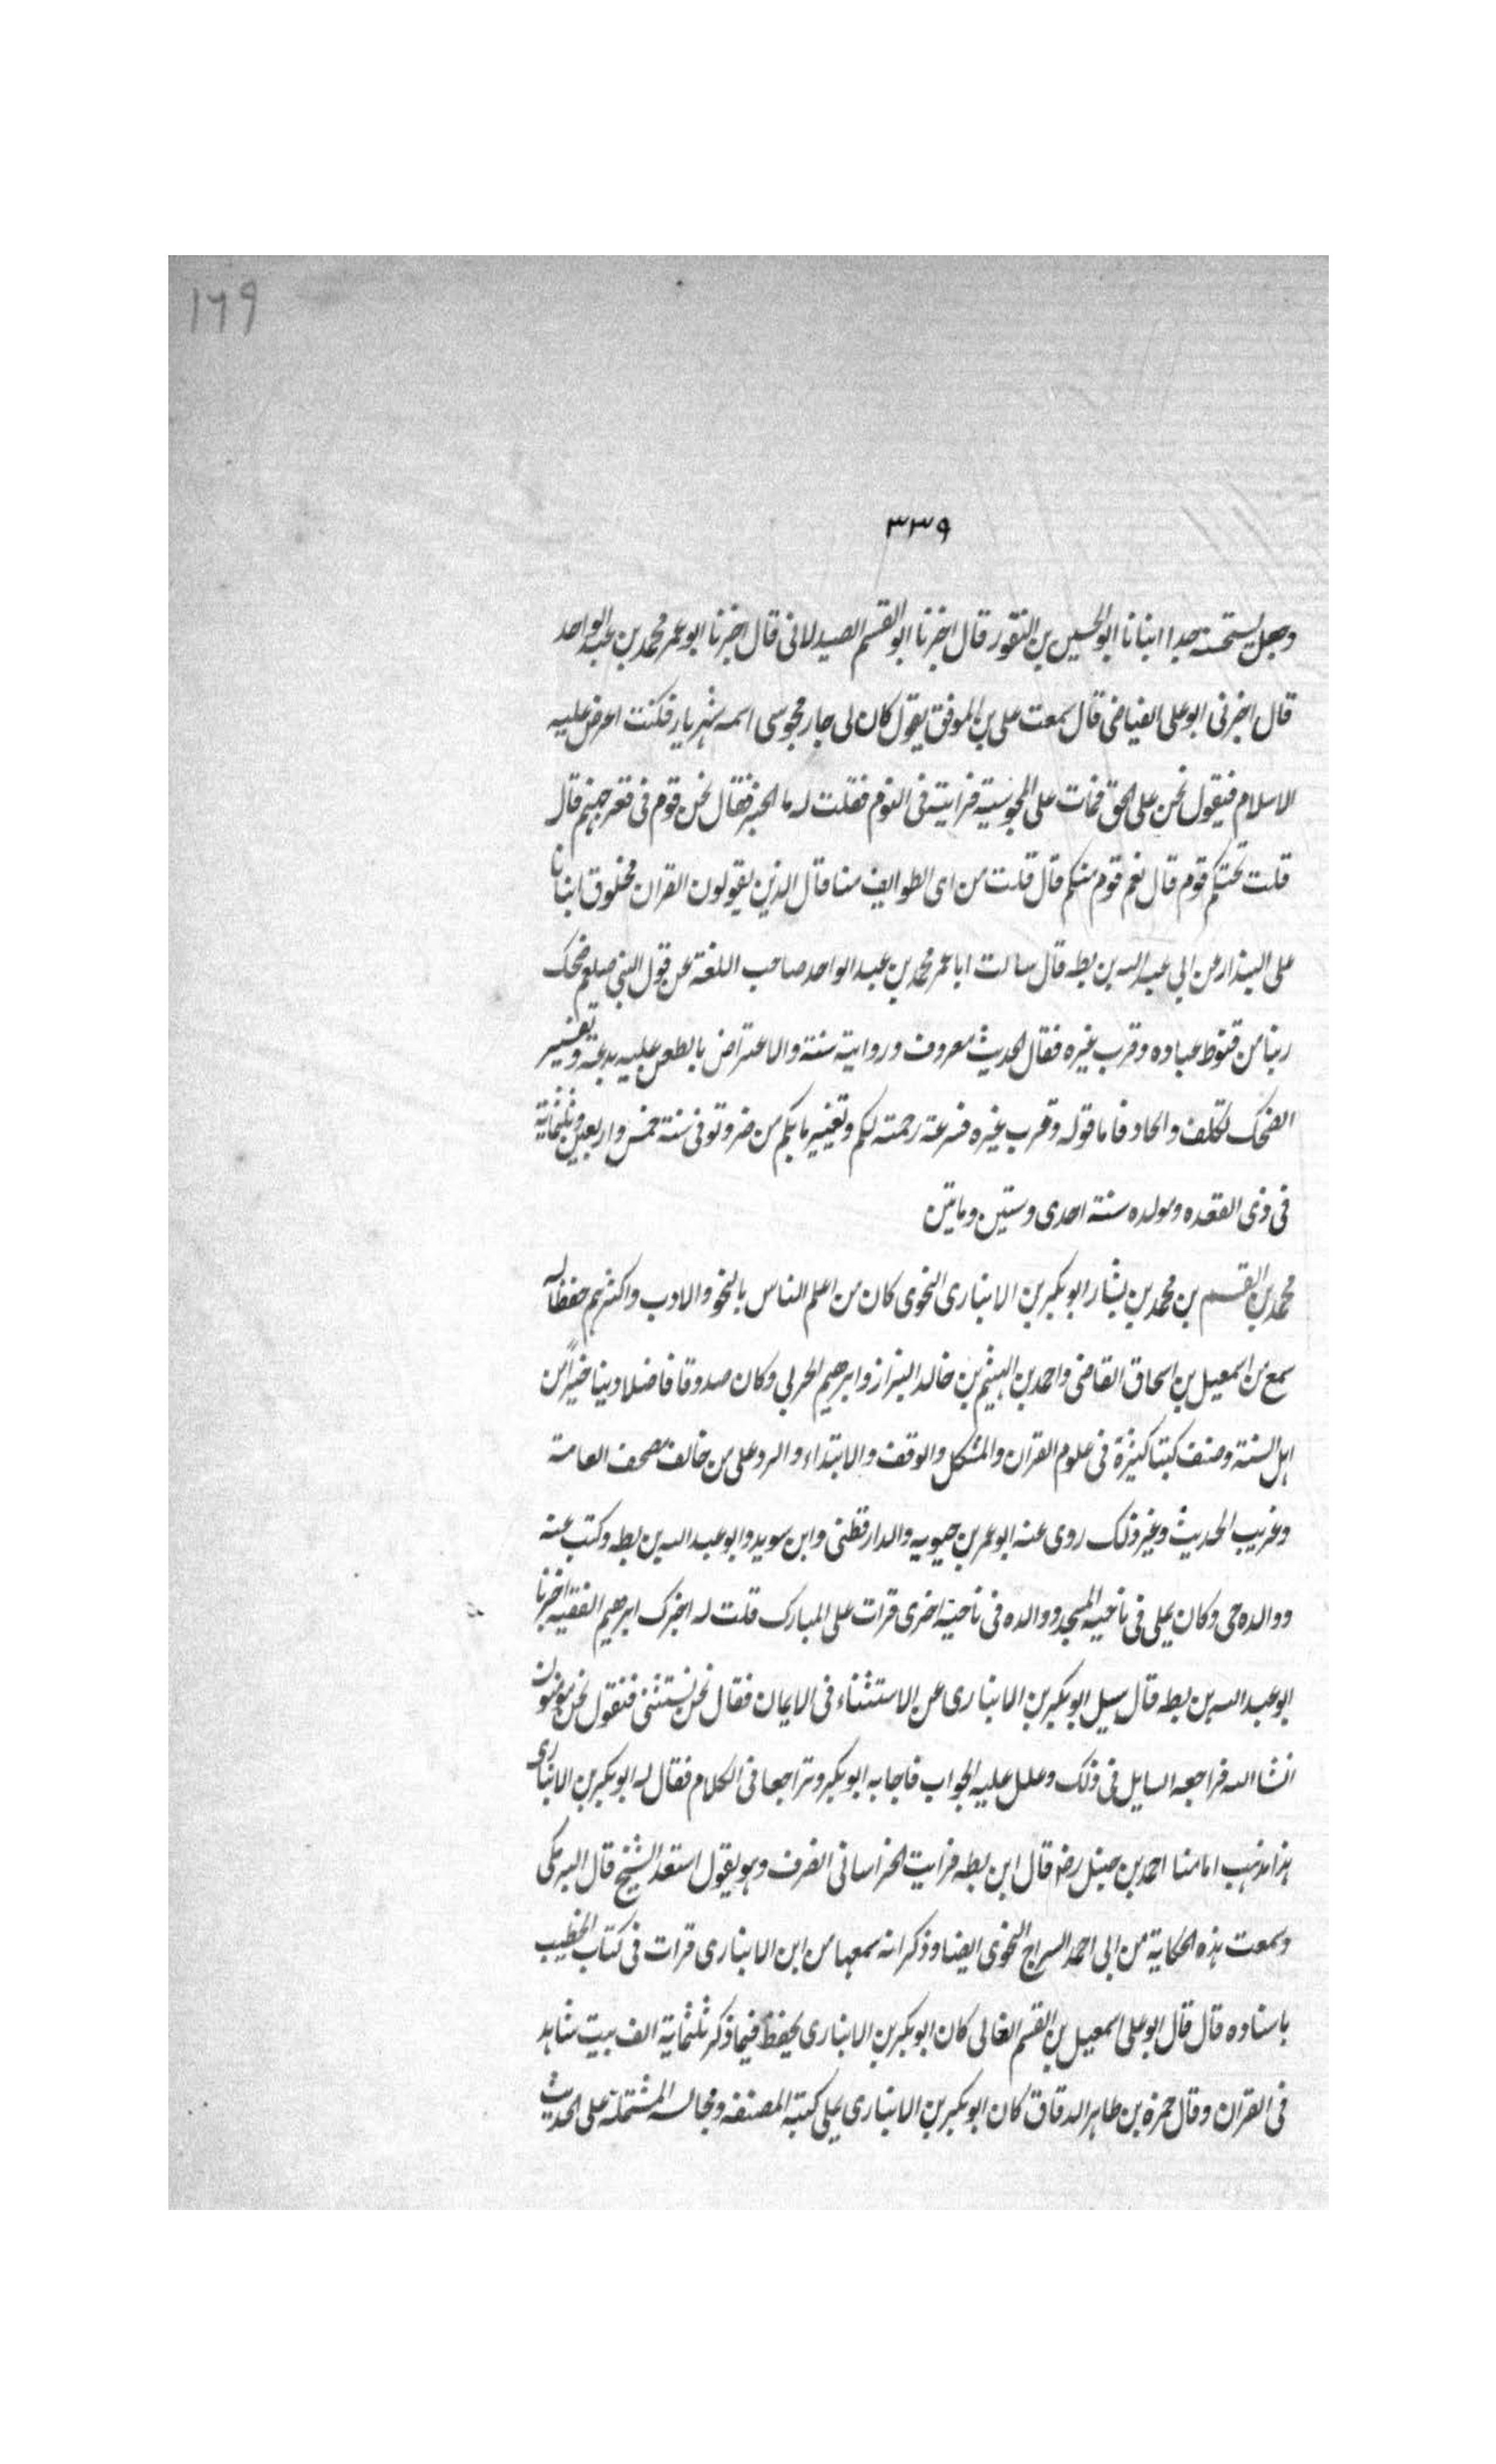 ١٦٩
٣٣٩
وجعل يستحسنه جدا انبانا ابو الحسين بن النقور قال اخبرنا ابو القسم الصيدلانى قال اخبرنا ابو عمر محمد بن عبد الواحد
قال اخبرنى ابو على الفياضى قال سمعت على بن الموفق يقول كان لى جار مجوسى اسمه شهريار فكنت اعرض عليه
الاسلام فيقول نحن على الحق فمات على المجوسية فرايته فى النوم فقلت له ما الخبر فقال نحن قوم فى قعر جهنم قال
قلت تحتكم قوم قال نعم قوم منكم قال قلت من اى الطوايف منا قال الذين يقولون القران مخلوق انبانا
على البندار عن ابى عبد الله بن بطه قال سالت ابا عمر محمد بن عبد الواحد صاحب اللغة عن قول النبى صلعم ضحك
ربنا من قنوط عباده وقرب غيره فقال الحديث معروف وروايته سنة والاعتراض بالطعن عليه بدعة وتفسير
الضحك تكلف والحاد فاما قوله وقرب غيره فسرعة رحمته لكم وتغيير ما بكم من ضر وتوفى سنة خمس واربعين وثلثماية
فى ذى القعده ومولده سنة احدى وستين وماتين
محمد بن القسم بن محمد بن بشار ابو بكر بن الانبارى النحوى كان من اعلم الناس بالنحو والادب واكثرهم حفظا له
سمع من اسمعيل بن اسحاق القاضى واحمد بن الهيثم بن خالد البزاز وابرهيم الحربى وكان صدوقا فاضلا دينا خيرا من
اهل السنة وصنف كتبا كثيرة فى علوم القران والمشكل والوقف والابتداء والرد على من خالف مصحف العامة
وغريب الحديث وغير ذلك روى عنه ابو عمر بن حيويه والدارقطنى وابن سويد وابو عبد الله بن بطه وكتب عنه
ووالده حى وكان يملى فى ناحية المسجد ووالده فى ناحية اخرى قرات على المبارك قلت له اخبرك ابرهيم الفقيه اخبرنا
ابو عبد الله بن بطه قال سيل ابو بكر بن الانبارى عن الاستثناء فى الايمان فقال نحن نستثنى فنقول نحن مومنون
انشا الله فراجعه السايل فى ذلك وعلل عليه الجواب فاجابه ابو بكر وتراجعا فى الكلام فقال له ابو بكر بن الانبارى
هذا مذهب امامنا احمد بن حنبل رضه قال ابن بطه فرايت الخراسانى انصرف وهو يقول استعد الشيخ قال البرمكى
وسمعت هذه الحكاية من ابى احمد السراج النحوى ايضا وذكر انه سمعها من ابن الانبارى قرات فى كتاب الخطيب
باسناده قال قال ابو على اسمعيل بن القسم القالى كان ابو بكر بن الانبارى يحفظ فيما ذكر ثلثماية الف بيت شاهد
فى القران وقال حمزة بن طاهر الدقاق كان ابو بكر بن الانبارى يملى كتبه المصنفه ومجالسه المشتملة على الحديث